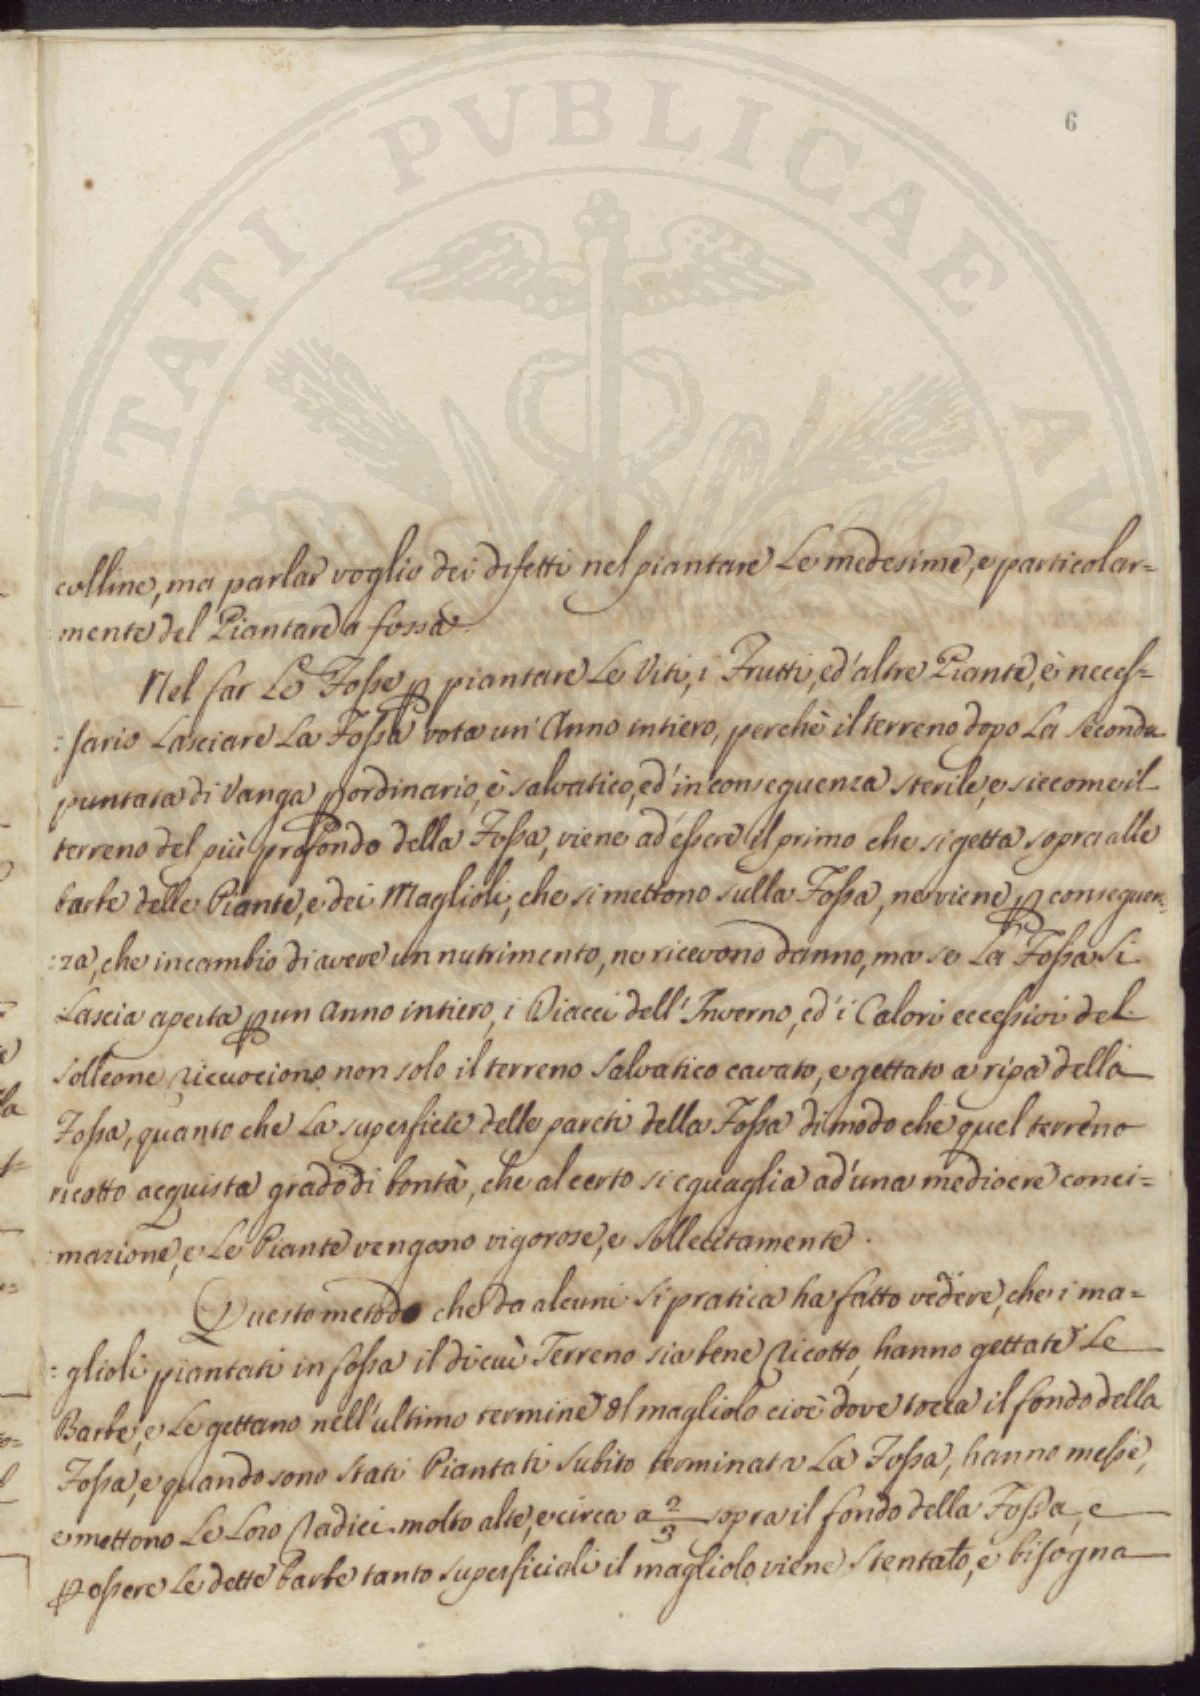 PVBLICAE
ITATI
AV
6
colline, ma parlar voglio dei difetti nel piantare Le medesime, e particolar=
:mente del Piantare a fossa.
Nel far Le Fosse p piantare Le Viti, i Frutti, ed'altre Piante, è neces=
:sario Lasciare La Fossa vota un'Anno intiero, perchè il terreno dopo La seconda
puntata di Vanga p ordinario, è salvatico, ed'in conseguenza sterile, e siccome il
terreno del più profondo della Fossa, viene ad'essere il primo che si getta sopra alle
barbe delle Piante, e dei Maglioli, che si mettono sulla Fossa, ne viene p conseguen=
:za, che in cambio di avere un nutrimento, ne ricevono danno, ma se La Fossa si
Lascia aperta p un Anno intiero, i Diacci dell'Inverno, ed'i Calori eccessivi del
solleone ricuociono non solo il terreno salvatico cavato, e gettato a ripa della
Fossa, quanto che La superficie delle pareti della Fossa di modo che quel terreno
ricotto acquista grado di bontà, che al certo si eguaglia ad'una mediocre conci=
:mazione, e Le Piante vengono vigorose, e sollecitamente.
Questo metodo che da alcuni si pratica ha fatto vedere, che i ma=
=glioli piantati in fossa il di cui Terreno sia bene ricotto, hanno gettate Le
Barbe, e Le gettano nell'ultimo termine del magliolo cioè dove tocca il fondo della
Fossa, e quando sono stati Piantati subito terminata La Fossa, hanno messe,
e mettono Le Loro radici molto alte, e circa a 2/3 sopra il fondo della Fossa, e
p essere Le dette barbe tanto superficiali il magliolo viene stentato, e bisogna